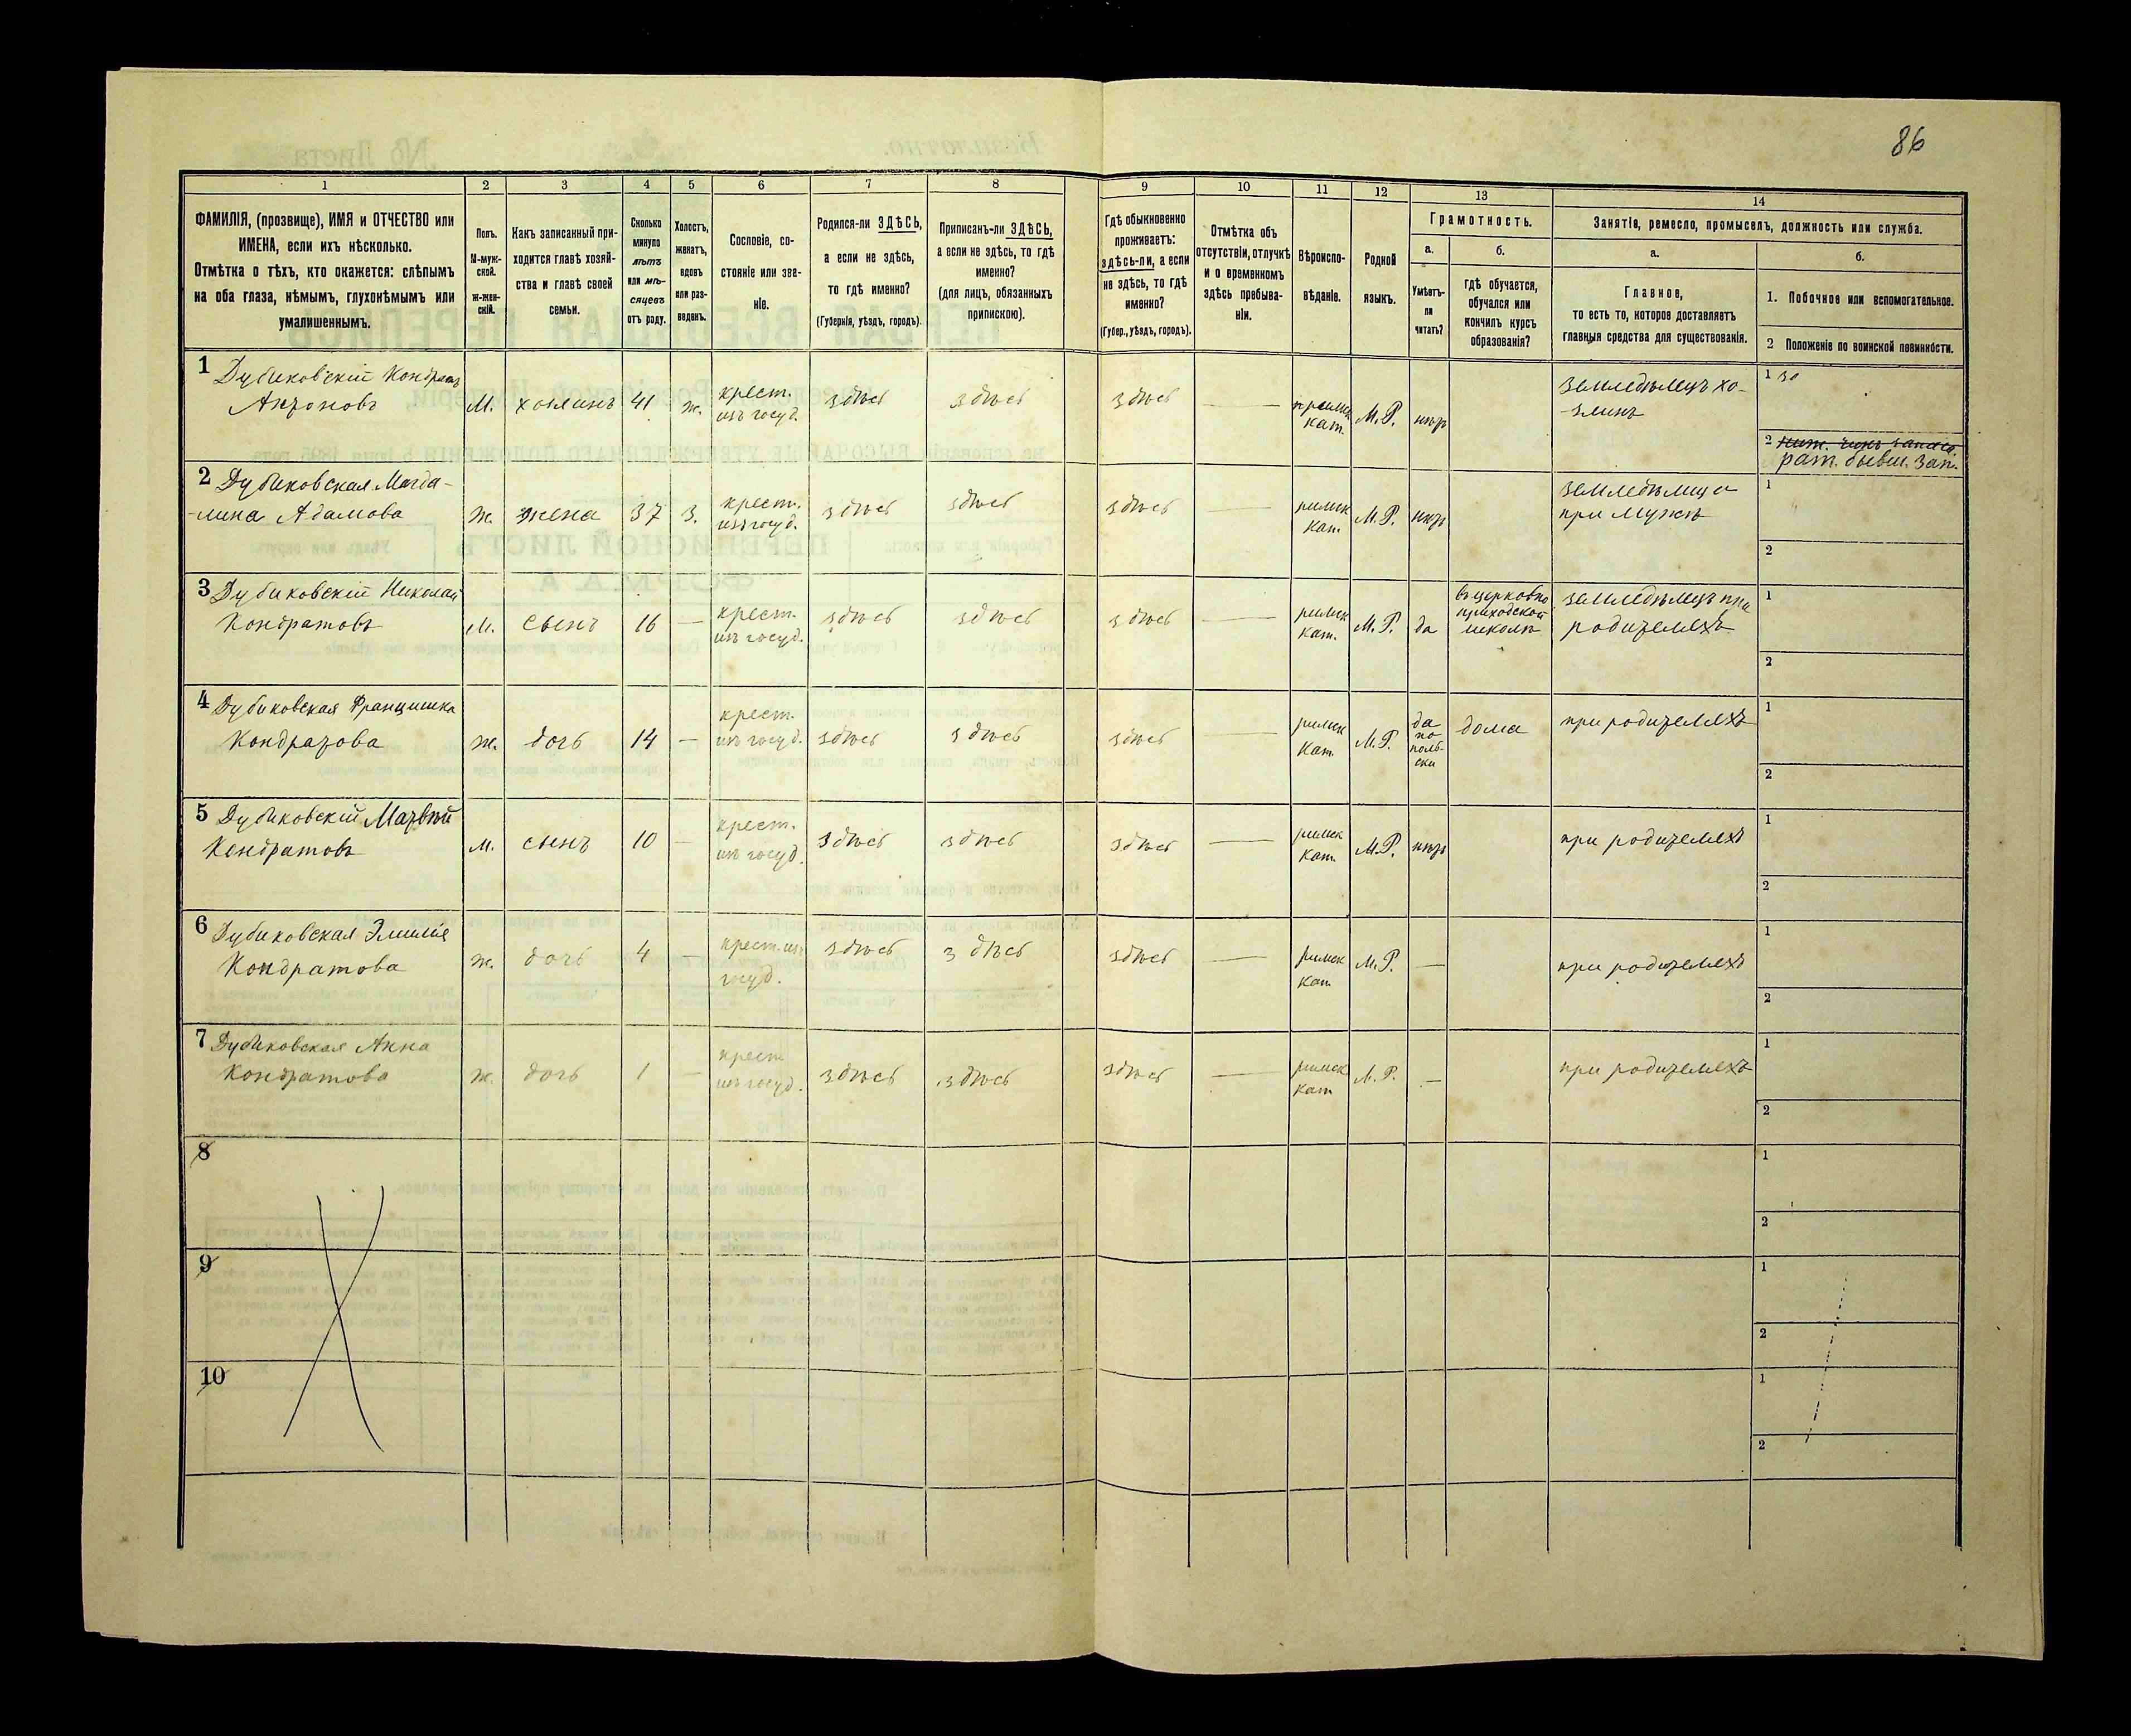 86
1
2
3
4
5
6
7
8
9
10
11
12
13
14
ФАМИЛІЯ, (прозвище), ИМЯ и ОТЧЕСТВО или
ИМЕНА, если ихъ нѣсколько.
Отмѣтка о тѣхъ, кто окажется: слѣпымъ
на оба глаза, нѣмымъ, глухонѣмымъ или
умалишеннымъ.
Полъ.
М-муж-
ской.
ж-жен-
скій.
Какъ записанный при-
ходится главѣ хозяй-
ства и главѣ своей
семьи.
Сколько
минуло
лѣтъ
или мѣ-
сяцевъ
отъ роду.
Холостъ,
женатъ,
вдовъ
или раз-
веденъ.
Сословіе, со-
стояніе или зва-
ніе.
Родился-ли ЗДѢСЬ,
а если не здѣсь,
то гдѣ именно?
(Губернія, уѣздъ, городъ).
Приписанъ-ли ЗДѢСЬ,
а если не здѣсь, то гдѣ
именно?
(для лицъ, обязанныхъ
припискою).
Гдѣ обыкновенно
проживаетъ:
здѣсь-ли, а если
не здѣсь, то гдѣ
именно?
(Губер., уѣздъ, городъ).
Отмѣтка объ
отсутствіи, отлучкѣ
и о временномъ
здѣсь пребыва-
ніи.
Вѣроиспо-
вѣданіе.
Родной
языкъ.
Грамотность.
а.
Умѣетъ-
ли
читать?
б.
гдѣ обучается,
обучался или
кончилъ курсъ
образованія?
Занятіе, ремесло, промыселъ, должность или служба.
а.
Главное,
то есть то, которое доставляетъ
главныя средства для существованія.
б.
1. Побочное или вспомогательное.
2 Положеніе по воинской повинности.
1 Дубиковскій Кондратъ
Антоновъ
М.
хозяинъ
41
ж.
крест.
изъ госуд.
здѣсь
здѣсь
здѣсь
римск
кат.
М.Р.
нѣтъ
земледѣлецъ хо-
-зяинъ
1
2
рат. бывш. зап.
2 Дубиковская Магда-
-лина Адамова
ж.
жена
37
з.
крест.
изъ госуд.
здѣсь
здѣсь
здѣсь
римск
кат.
М.Р.
нѣтъ
земледѣлица
при мужѣ
1
2
3 Дубиковскій Николай
Кондратовъ
м.
сынъ
16
—
крест.
изъ госуд.
здѣсь
здѣсь
здѣсь
римск
кат.
М.Р.
да
въ церковно
приходской
школѣ
земледѣлецъ при
родителяхъ
1
2
4 Дубиковская Францишка
Кондратова
ж.
дочь
14
—
крест.
изъ госуд.
здѣсь
здѣсь
здѣсь
римск
кат.
М.Р.
да
по
поль-
ски
дома
при родителяхъ
1
2
5 Дубиковскій Матвѣй
Кондратовъ
м.
сынъ
10
—
крест.
изъ госуд.
здѣсь
здѣсь
здѣсь
римск
кат.
М.Р.
нѣтъ
при родителяхъ
1
2
6 Дубиковская Эмилія
Кондратова
ж.
дочь
4
—
крест. изъ
госуд.
здѣсь
здѣсь
здѣсь
римск
кат.
М.Р.
—
при родителяхъ
1
2
7 Дубиковская Анна
Кондратова
ж.
дочь
1
—
крест.
изъ госуд.
здѣсь
здѣсь
здѣсь
римск
кат
М.Р.
—
при родителяхъ
1
2
8
1
2
9
1
2
10
1
2